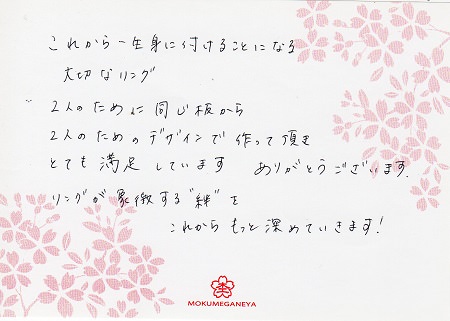 これから一生身に付けることになる
大切なリング
2人のために同じ板から
2人のためのデザインで作って頂き
とても満足しています ありがとうございます.
リングが象徴する"絆"を
これからもっと深めていきます!
MOKUMEGANEYA